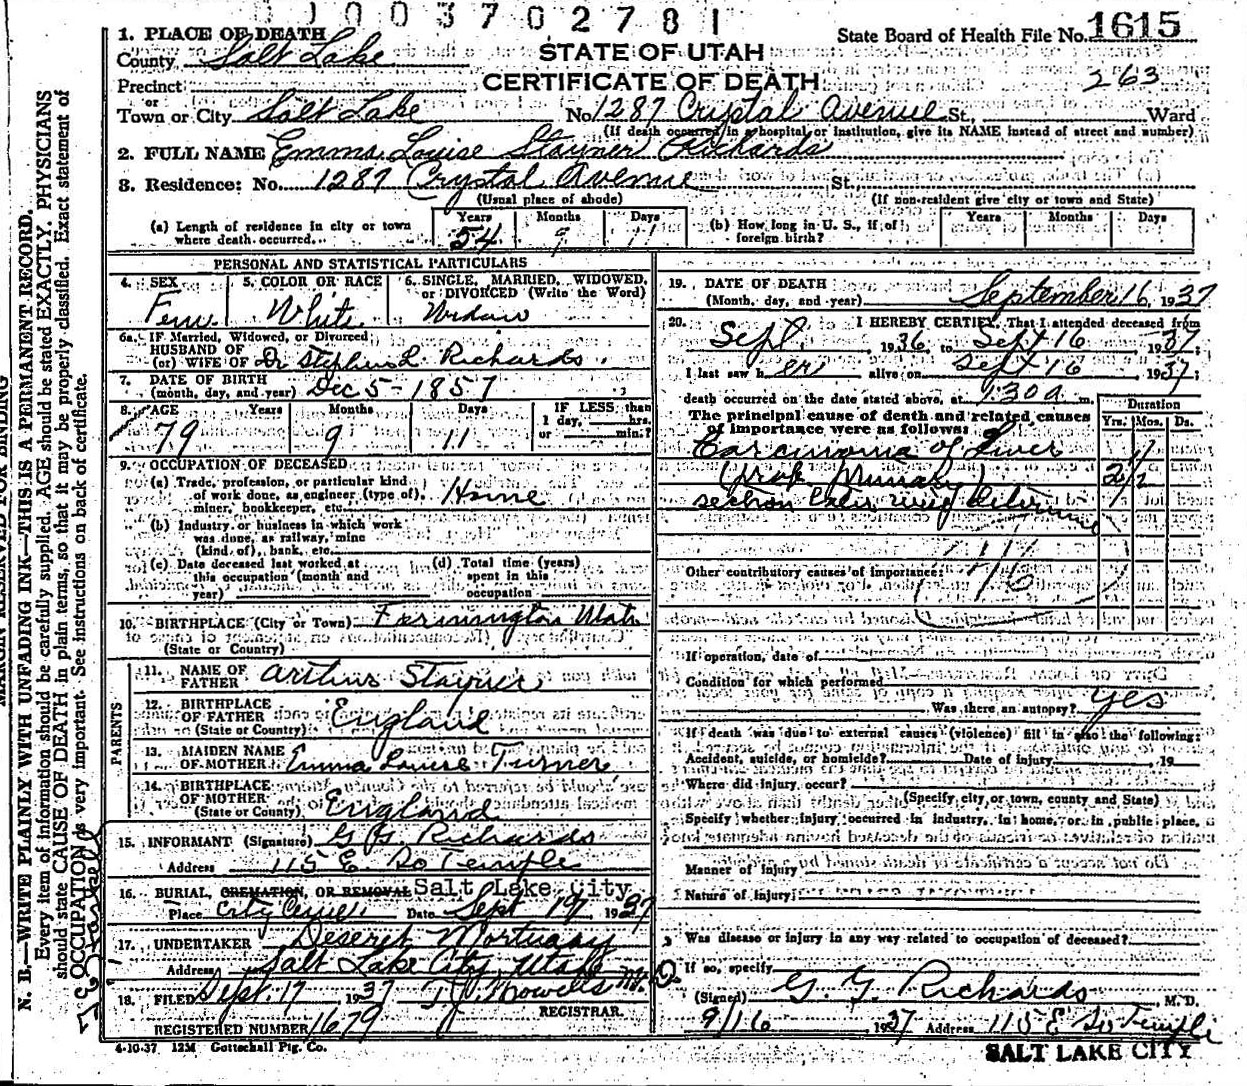 1003702781
1. PLACE OF DEATH
County Salt Lake
STATE OF UTAH
CERTIFICATE OF DEATH
State Board of Health File No. 1615
263
Precinct
or
Town or City Salt Lake No. 1287 Crystal Avenue St., Ward
(If death occurred in a hospital or institution, give its NAME instead of street and number)
2. FULL NAME Emma Louise Stayner Richards
3. Residence: No. 1287 Crystal Avenue St.
(Usual place of abode) (If non-resident give city or town and State)
(a) Length of residence in city or town where death occurred. Years 54 Months 9 Days 11
(b) How long in U. S., if of foreign birth? Years Months Days
PERSONAL AND STATISTICAL PARTICULARS
4. SEX Fem
5. COLOR OR RACE White
6. SINGLE, MARRIED, WIDOWED, or DIVORCED (Write the Word) Widow
6a. IF Married, Widowed, or Divorced
HUSBAND OF
(or) WIFE OF Dr Stephen L. Richards.
7. DATE OF BIRTH
(month, day, and year) Dec 5 - 1857
8. AGE Years 79 Months 9 Days 11 IF LESS than 1 day, hrs. or min.?
9. OCCUPATION OF DECEASED
(a) Trade, profession, or particular kind of work done, as engineer (type of), miner, bookkeeper, etc. Home
(b) Industry or business in which work was done, as railway, mine (kind of), bank, etc.
(c) Date deceased last worked at this occupation (month and year)
(d) Total time (years) spent in this occupation
10. BIRTHPLACE (City or Town) Farmington Utah
(State or Country)
PARENTS
11. NAME OF FATHER Arthur Stayner
12. BIRTHPLACE OF FATHER England
(State or Country)
13. MAIDEN NAME OF MOTHER Emma Louise Turner
14. BIRTHPLACE OF MOTHER England
(State or Country)
15. INFORMANT (Signature) G G Richards
Address 115 E. So Temple
16. BURIAL, CREMATION, OR REMOVAL Salt Lake City
Place City Cem. Date Sept 19, 1937
17. UNDERTAKER Deseret Mortuary
Address Salt Lake City, Utah
18. FILED Sept. 17 1937 T J Howells M.D.
REGISTRAR.
REGISTERED NUMBER 1679
4-10-37 12M Gottschall Ptg. Co.
19. DATE OF DEATH
(Month, day, and year) September 16, 1937
20. I HEREBY CERTIFY, That I attended deceased from
Sept. 1936, to Sept 16 1937;
I last saw h er alive on Sept 16 1937;
death occurred on the date stated above, at 1:30 a m.
The principal cause of death and related causes of importance were as follows:
Duration
Yrs. Mos. Ds.
Carcinoma of Liver
(prob. Primary) 2 1/2
section
Other contributory causes of importance:
46
If operation, date of
Condition for which performed
Was there an autopsy? yes
If death was due to external causes (violence) fill in also the following:
Accident, suicide, or homicide? Date of injury , 19
Where did injury occur?
(Specify city or town, county and State)
Specify whether injury occurred in industry, in home, or in public place.
Manner of Injury
Nature of Injury
Was disease or injury in any way related to occupation of deceased?
If so, specify
(Signed) G. G. Richards M. D.
9/16 1937 Address 115 E So Temple
SALT LAKE CITY
MARGIN RESERVED FOR BINDING
N. B.—WRITE PLAINLY WITH UNFADING INK—THIS IS A PERMANENT RECORD.
Every item of information should be carefully supplied. AGE should be stated EXACTLY. PHYSICIANS
should state CAUSE OF DEATH in plain terms, so that it may be properly classified. Exact statement of
OCCUPATION is very important. See instructions on back of certificate.